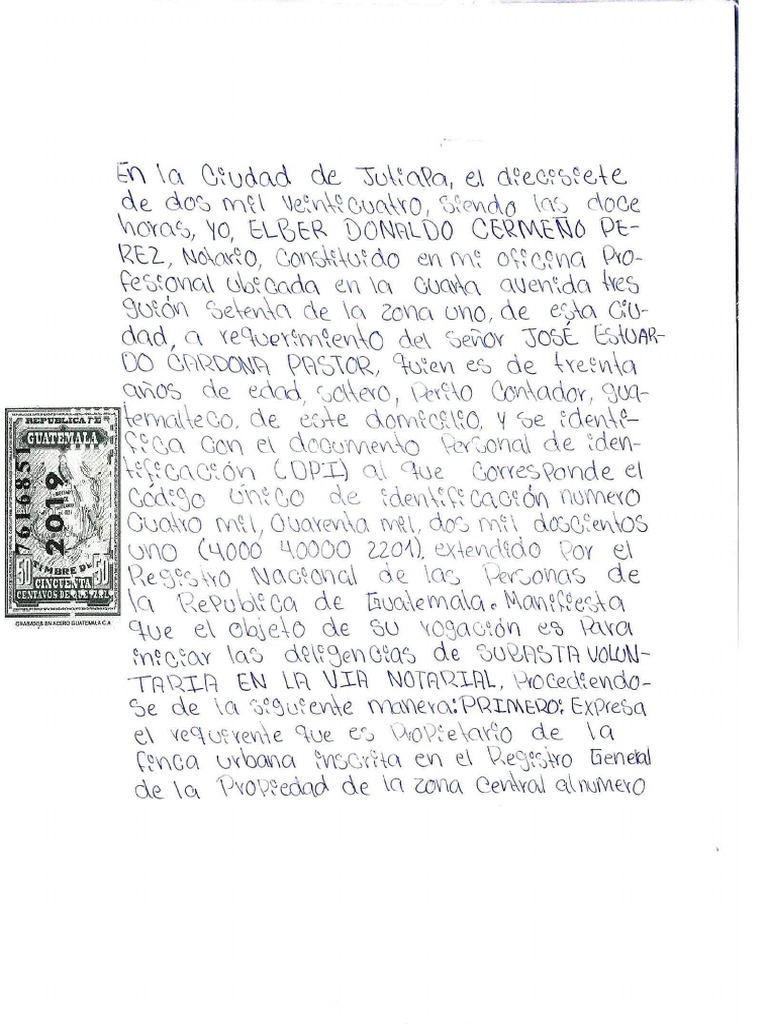 En la Ciudad de Jutiapa, el diecisiete
de dos mil veinticuatro, siendo las doce
horas, Yo, ELBER DONALDO CERMEÑO PE-
REZ, Notario, Constituido en mi oficina Pro-
fesional ubicada en la cuarta avenida tres
guión setenta de la zona uno, de esta ciu-
dad, a requerimiento del Señor JOSÉ ESTUAR-
DO CARDONA PASTOR, quien es de treinta
años de edad, soltero, Perito Contador, gua-
temalteco, de este domicilio, y se identi-
fica con el documento Personal de iden-
tificación (DPI) al que corresponde el
Código Único de identificación numero
cuatro mil, Cuarenta mil, dos mil doscientos
uno (4000 40000 2201), extendido Por el
Registro Nacional de las Personas de
la Republica de Guatemala. Manifiesta
que el objeto de su rogación es Para
iniciar las deligencias de SUBASTA VOLUN-
TARIA EN LA VIA NOTARIAL, Procediendo-
se de la siguiente manera: PRIMERO: Expresa
el requirente que es Propietario de la
finca urbana inscrita en el Registro General
de la Propiedad de la zona Central al numero
REPUBLICA DE
GUATEMALA
7616851
2019
TIMBRE DE
50 50
CINCUENTA
CENTAVOS DE
GRABADOS EN ACERO GUATEMALA C.A.